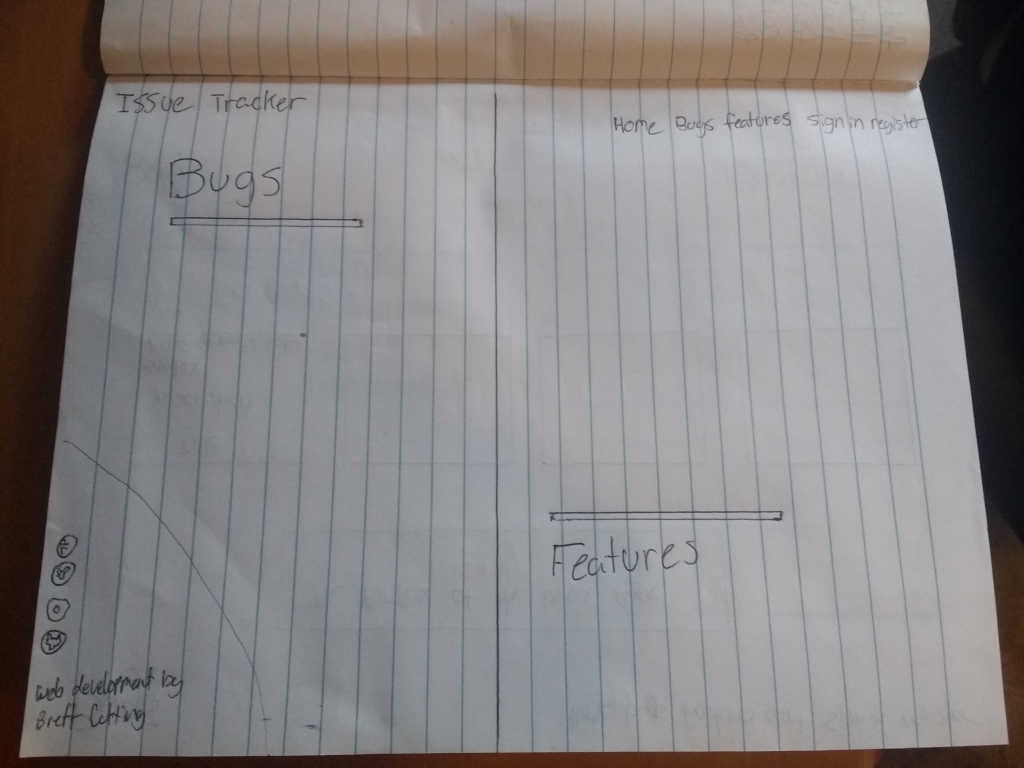 Issue Tracker
Home Bugs features sign in register
Bugs
Features
web development by
Brett Cutting